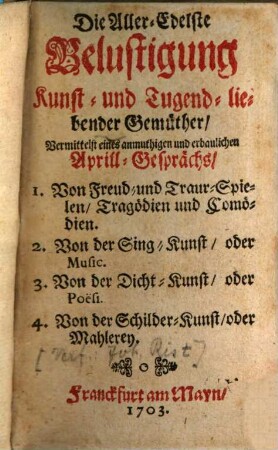 Die Aller-Edelste
Belustigung
Kunst- und Tugend-lie-
bender Gemüther/
Vermittelst eines anmuthigen und erbaulichen
Aprill-Gesprächs/
1. Von Freud-und Traur-Spie-
len/ Tragödien und Comö-
dien.
2. Von der Sing-Kunst/ oder
Music.
3. Von der Dicht-Kunst/ oder
Poësi.
4. Von der Schilder-Kunst/oder
Mahlerey.
[Verf: Joh. Rist]
Franckfurt am Mayn/
1703.